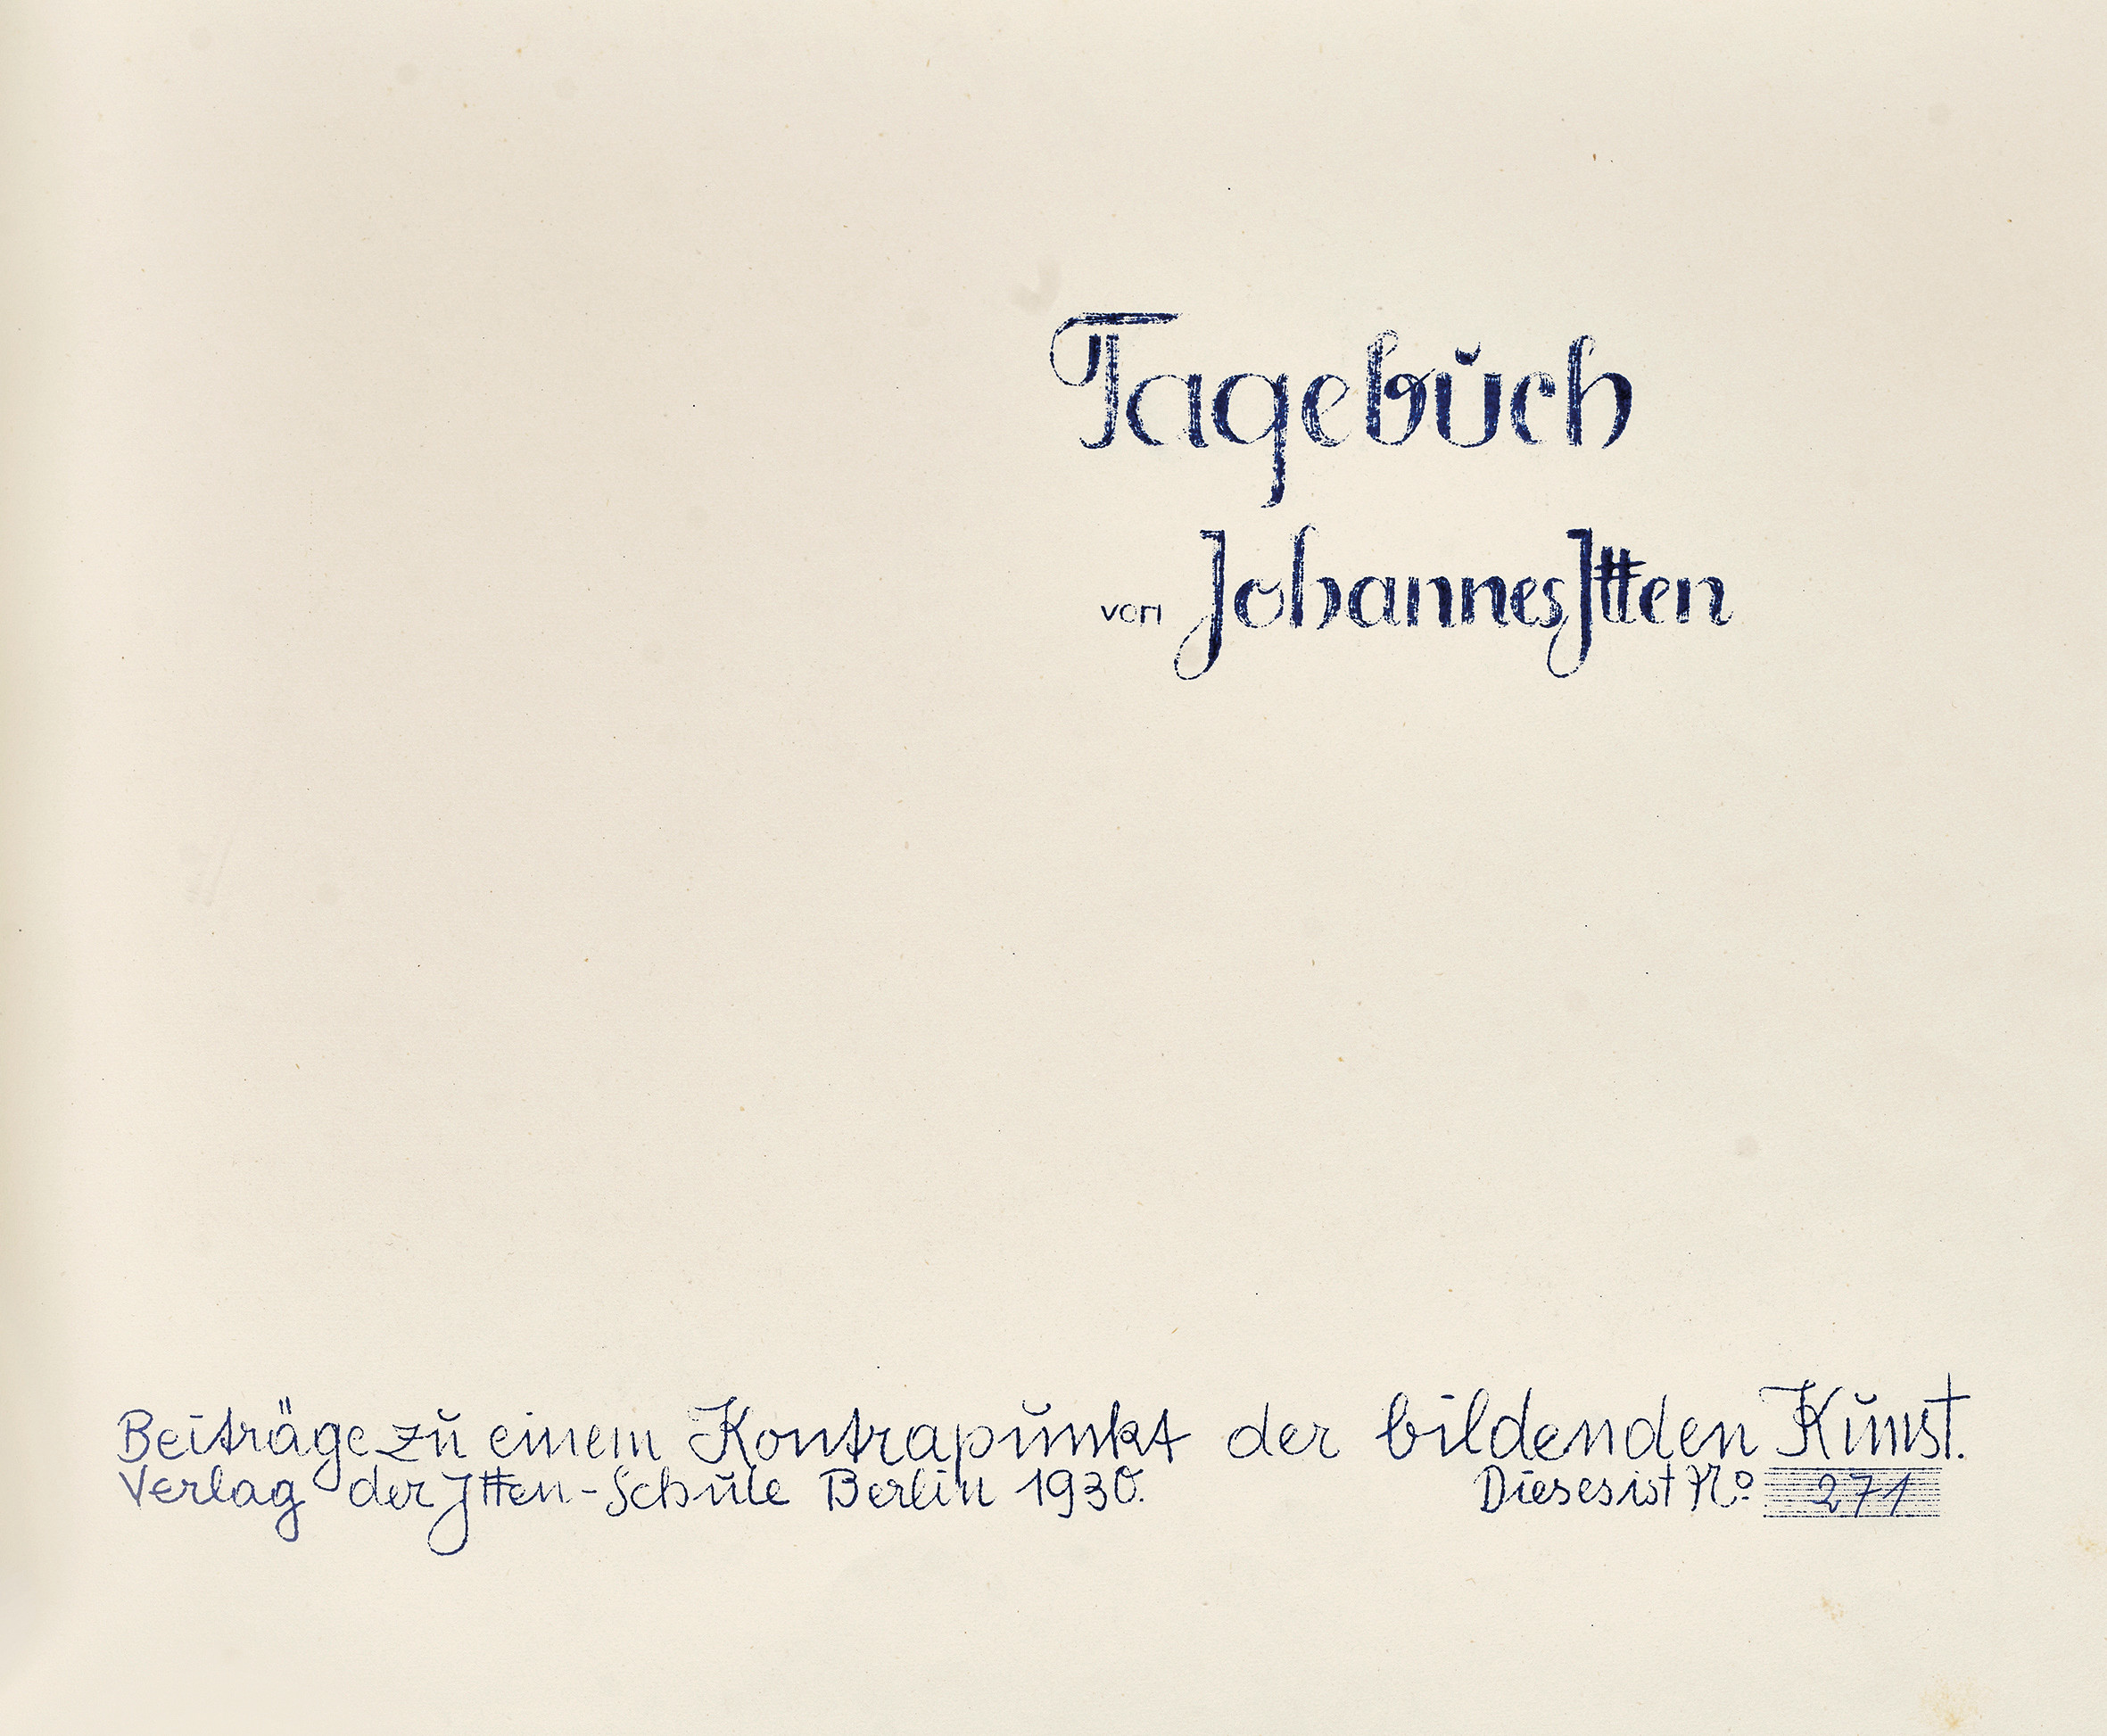 Tagebuch
von Johannes Itten
Beiträge zu einem Kontrapunkt der bildenden Kunst.
Verlag der Itten-Schule Berlin 1930. Dieses ist No 271